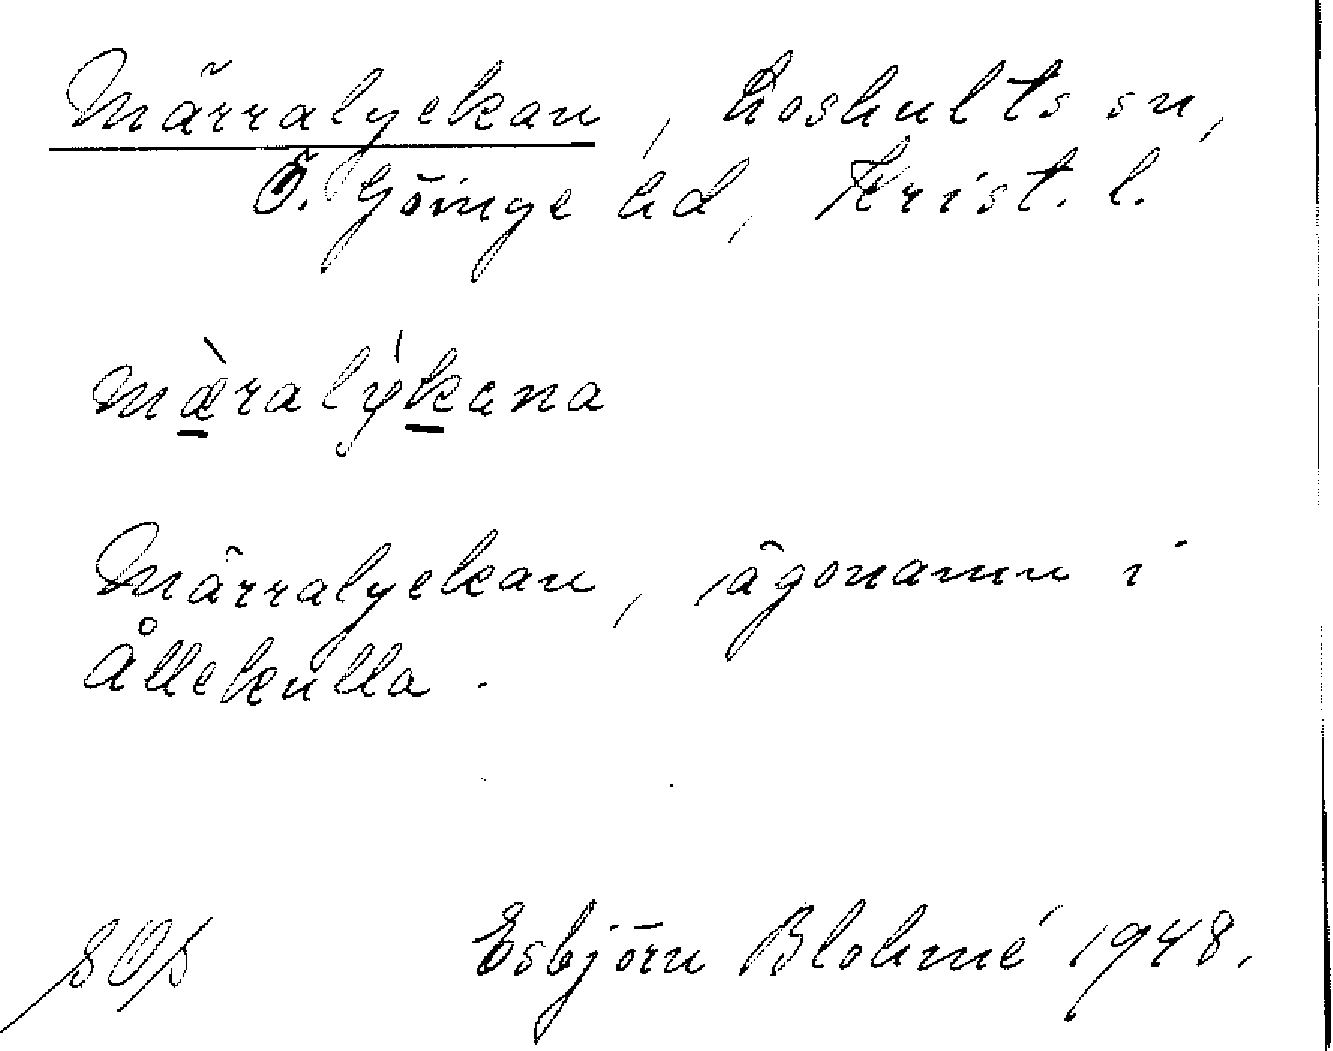 Märralyckan, Loshults sn,
Ö. Göinge hd, Krist. l.
mæ̀ralýkana
Märralyckan, ägonamn i
Ållekulla.
Esbjörn Blohmé 1948.